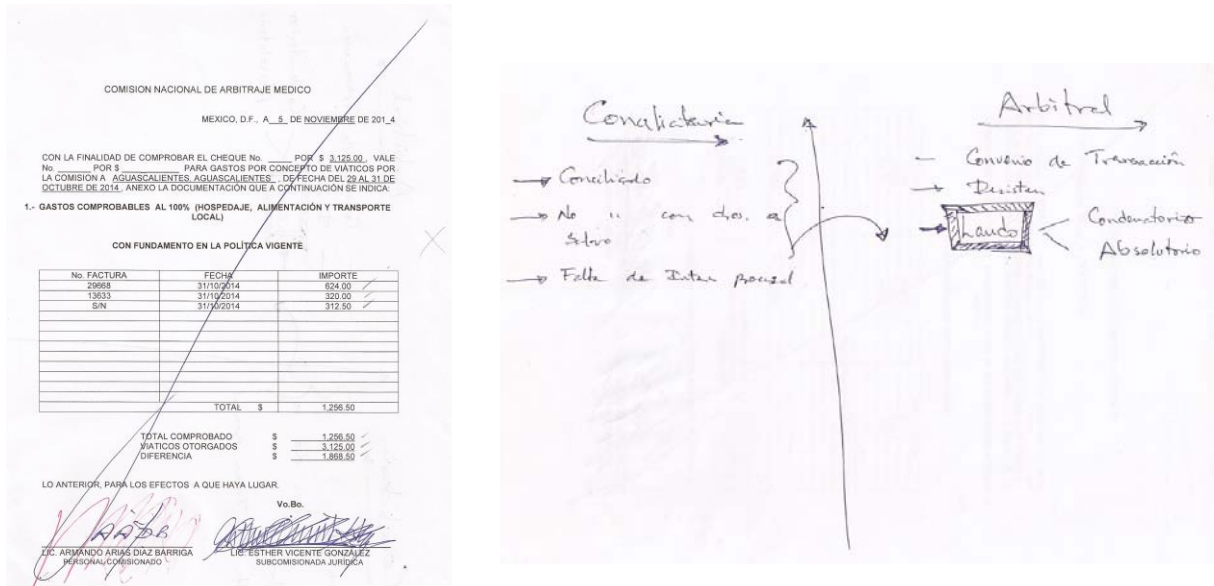 COMISION NACIONAL DE ARBITRAJE MEDICO
MEXICO, D.F., A 5 DE NOVIEMBRE DE 201_4
CON LA FINALIDAD DE COMPROBAR EL CHEQUE No. _____ POR $ 3,125.00 , VALE
No. _______ POR $ ____________ PARA GASTOS POR CONCEPTO DE VIÁTICOS POR
LA COMISIÓN A AGUASCALIENTES, AGUASCALIENTES , DE FECHA DEL 29 AL 31 DE
OCTUBRE DE 2014 , ANEXO LA DOCUMENTACIÓN QUE A CONTINUACIÓN SE INDICA:
1.- GASTOS COMPROBABLES AL 100% (HOSPEDAJE, ALIMENTACIÓN Y TRANSPORTE
LOCAL)
CON FUNDAMENTO EN LA POLÍTICA VIGENTE
No. FACTURA FECHA IMPORTE
29668 31/10/2014 624.00
13633 31/10/2014 320.00
S/N 31/10/2014 312.50
TOTAL $ 1,256.50
TOTAL COMPROBADO $ 1,256.50
VIATICOS OTORGADOS $ 3,125.00
DIFERENCIA $ 1,868.50
LO ANTERIOR, PARA LOS EFECTOS A QUE HAYA LUGAR.
Vo.Bo.
LIC. ARMANDO ARIAS DÍAZ BARRIGA
PERSONAL COMISIONADO
LIC. ESTHER VICENTE GONZÁLEZ
SUBCOMISIONADA JURÍDICA
Conciliatoria
Conciliado
No " con dros. a
Salvo
Falta de Interes procesal
Arbitral
Convenio de Transacción
Desisten
Laudo
Condenatorio
Absolutorio